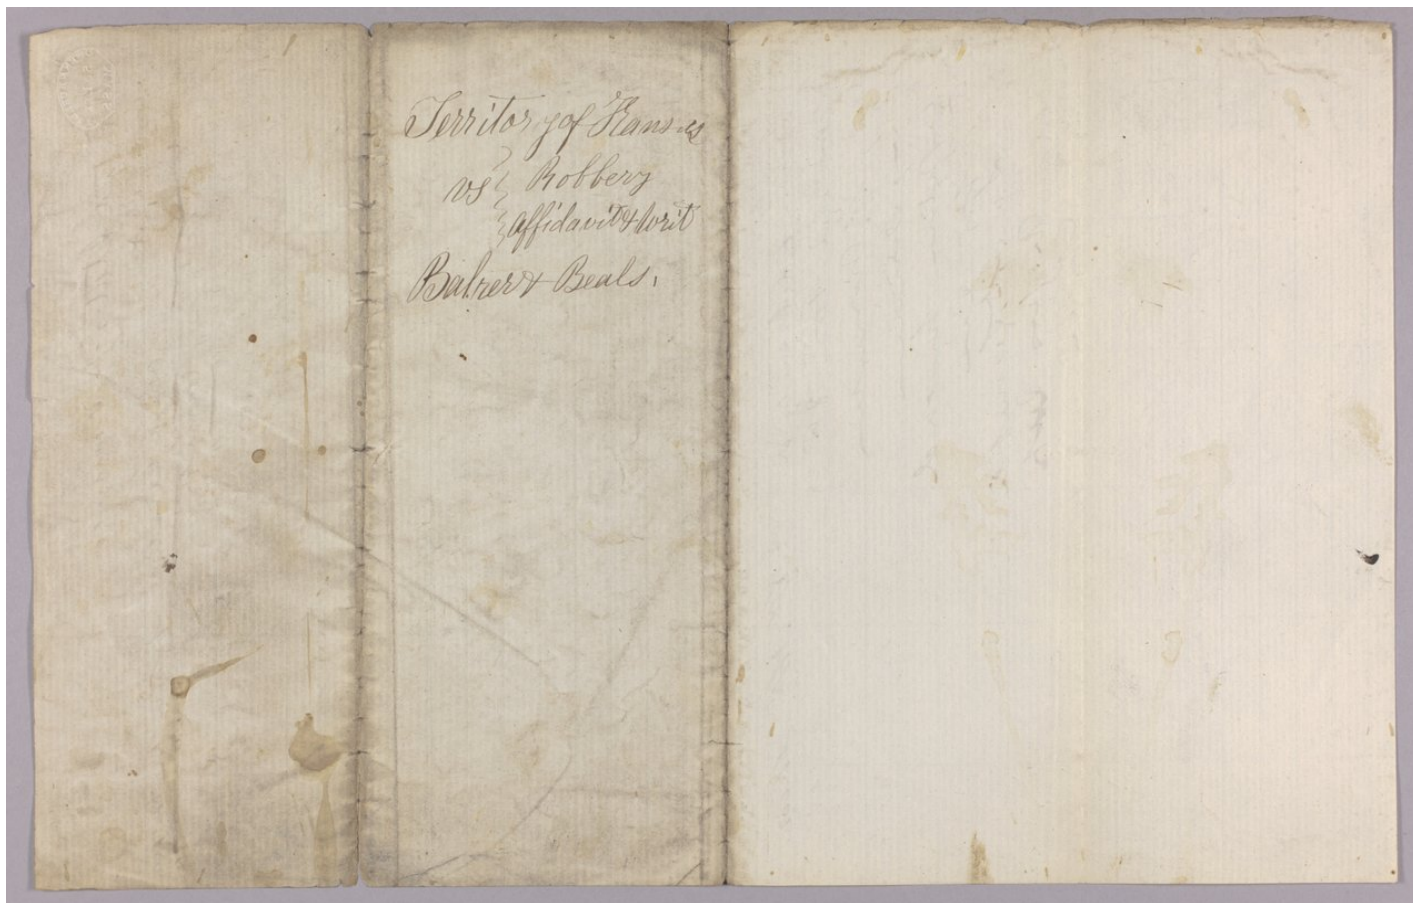 Territory of Kansas
vs Robbery
affidavit & writ
Balzer & Beals.